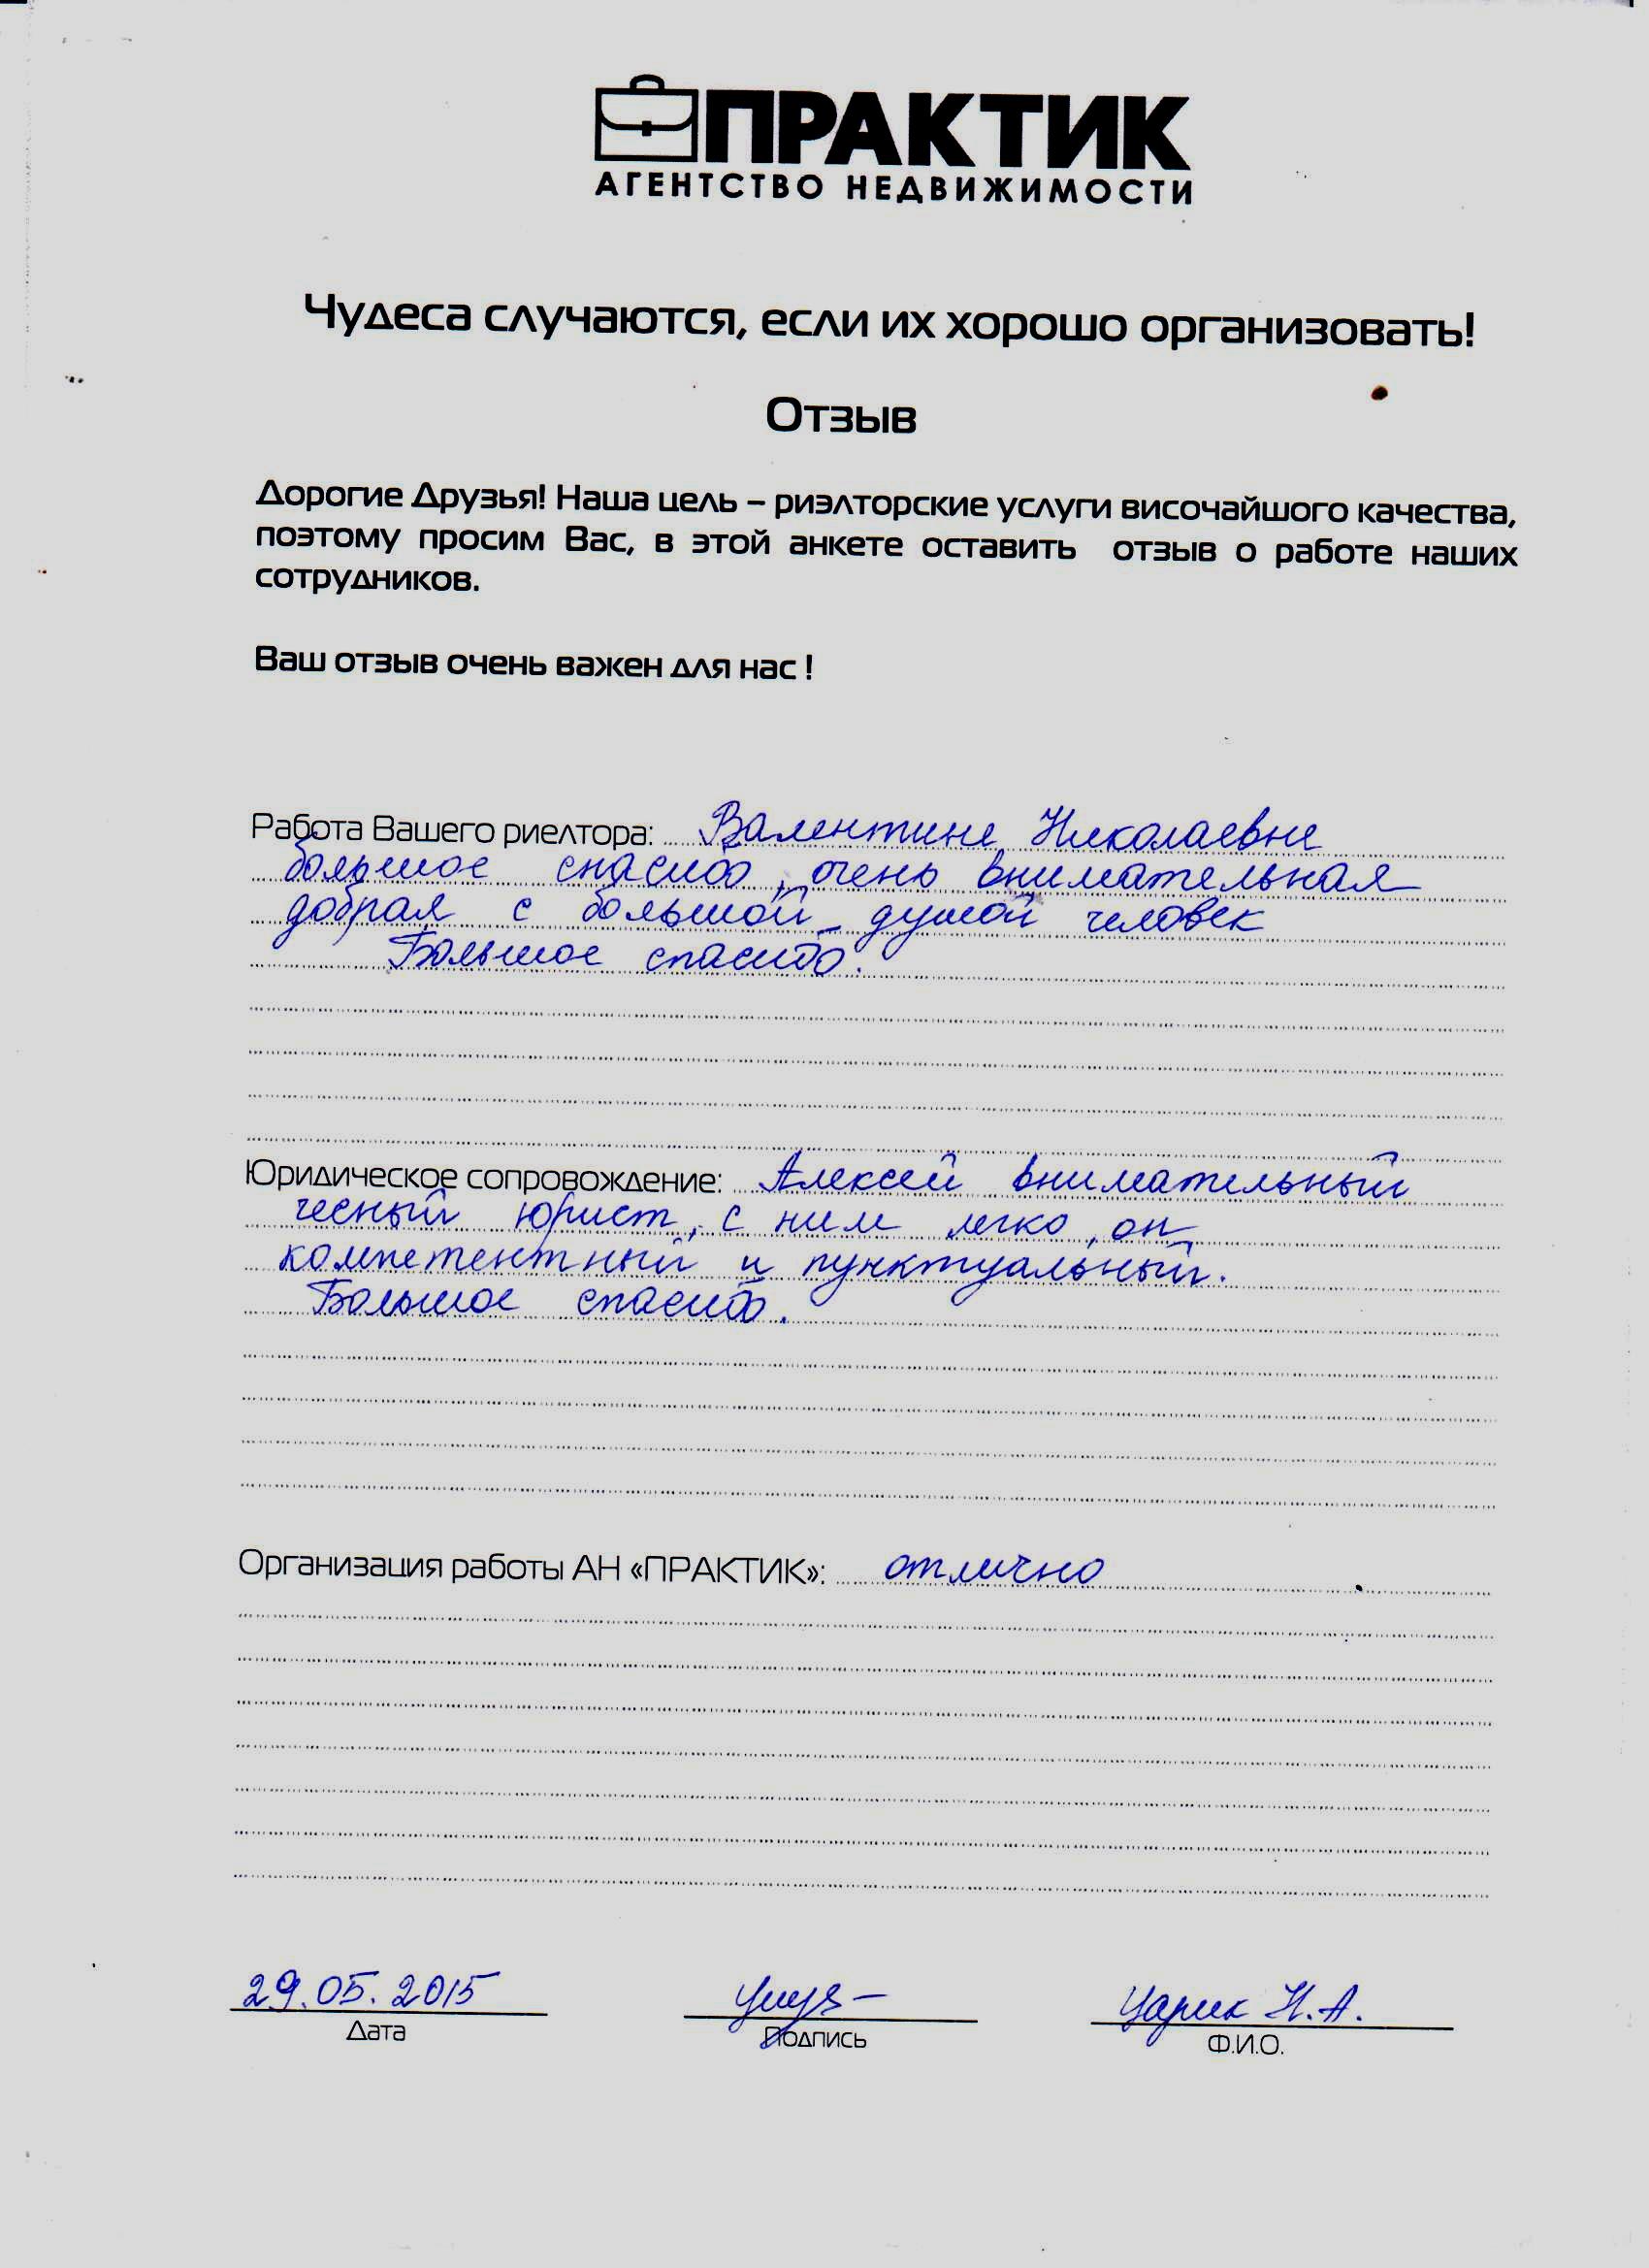 ПРАКТИК
АГЕНТСТВО НЕДВИЖИМОСТИ
Чудеса случаются, если их хорошо организовать!
Отзыв
Дорогие Друзья! Наша цель – риэлторские услуги височайшого качества,
поэтому просим Вас, в этой анкете оставить отзыв о работе наших
сотрудников.
Ваш отзыв очень важен для нас !
Работа Вашего риелтора: Валентине Николаевне
большое спасибо, очень внимательная
добрая с большой душой человек
Большое спасибо.
Юридическое сопровождение: Алексей внимательный
чесный юрист, с ним легко, он
компетентный и пунктуальный.
Большое спасибо.
Организация работы АН «ПРАКТИК»: отлично
29.05.2015 Царик Н.А.
Дата Подпись Ф.И.О.